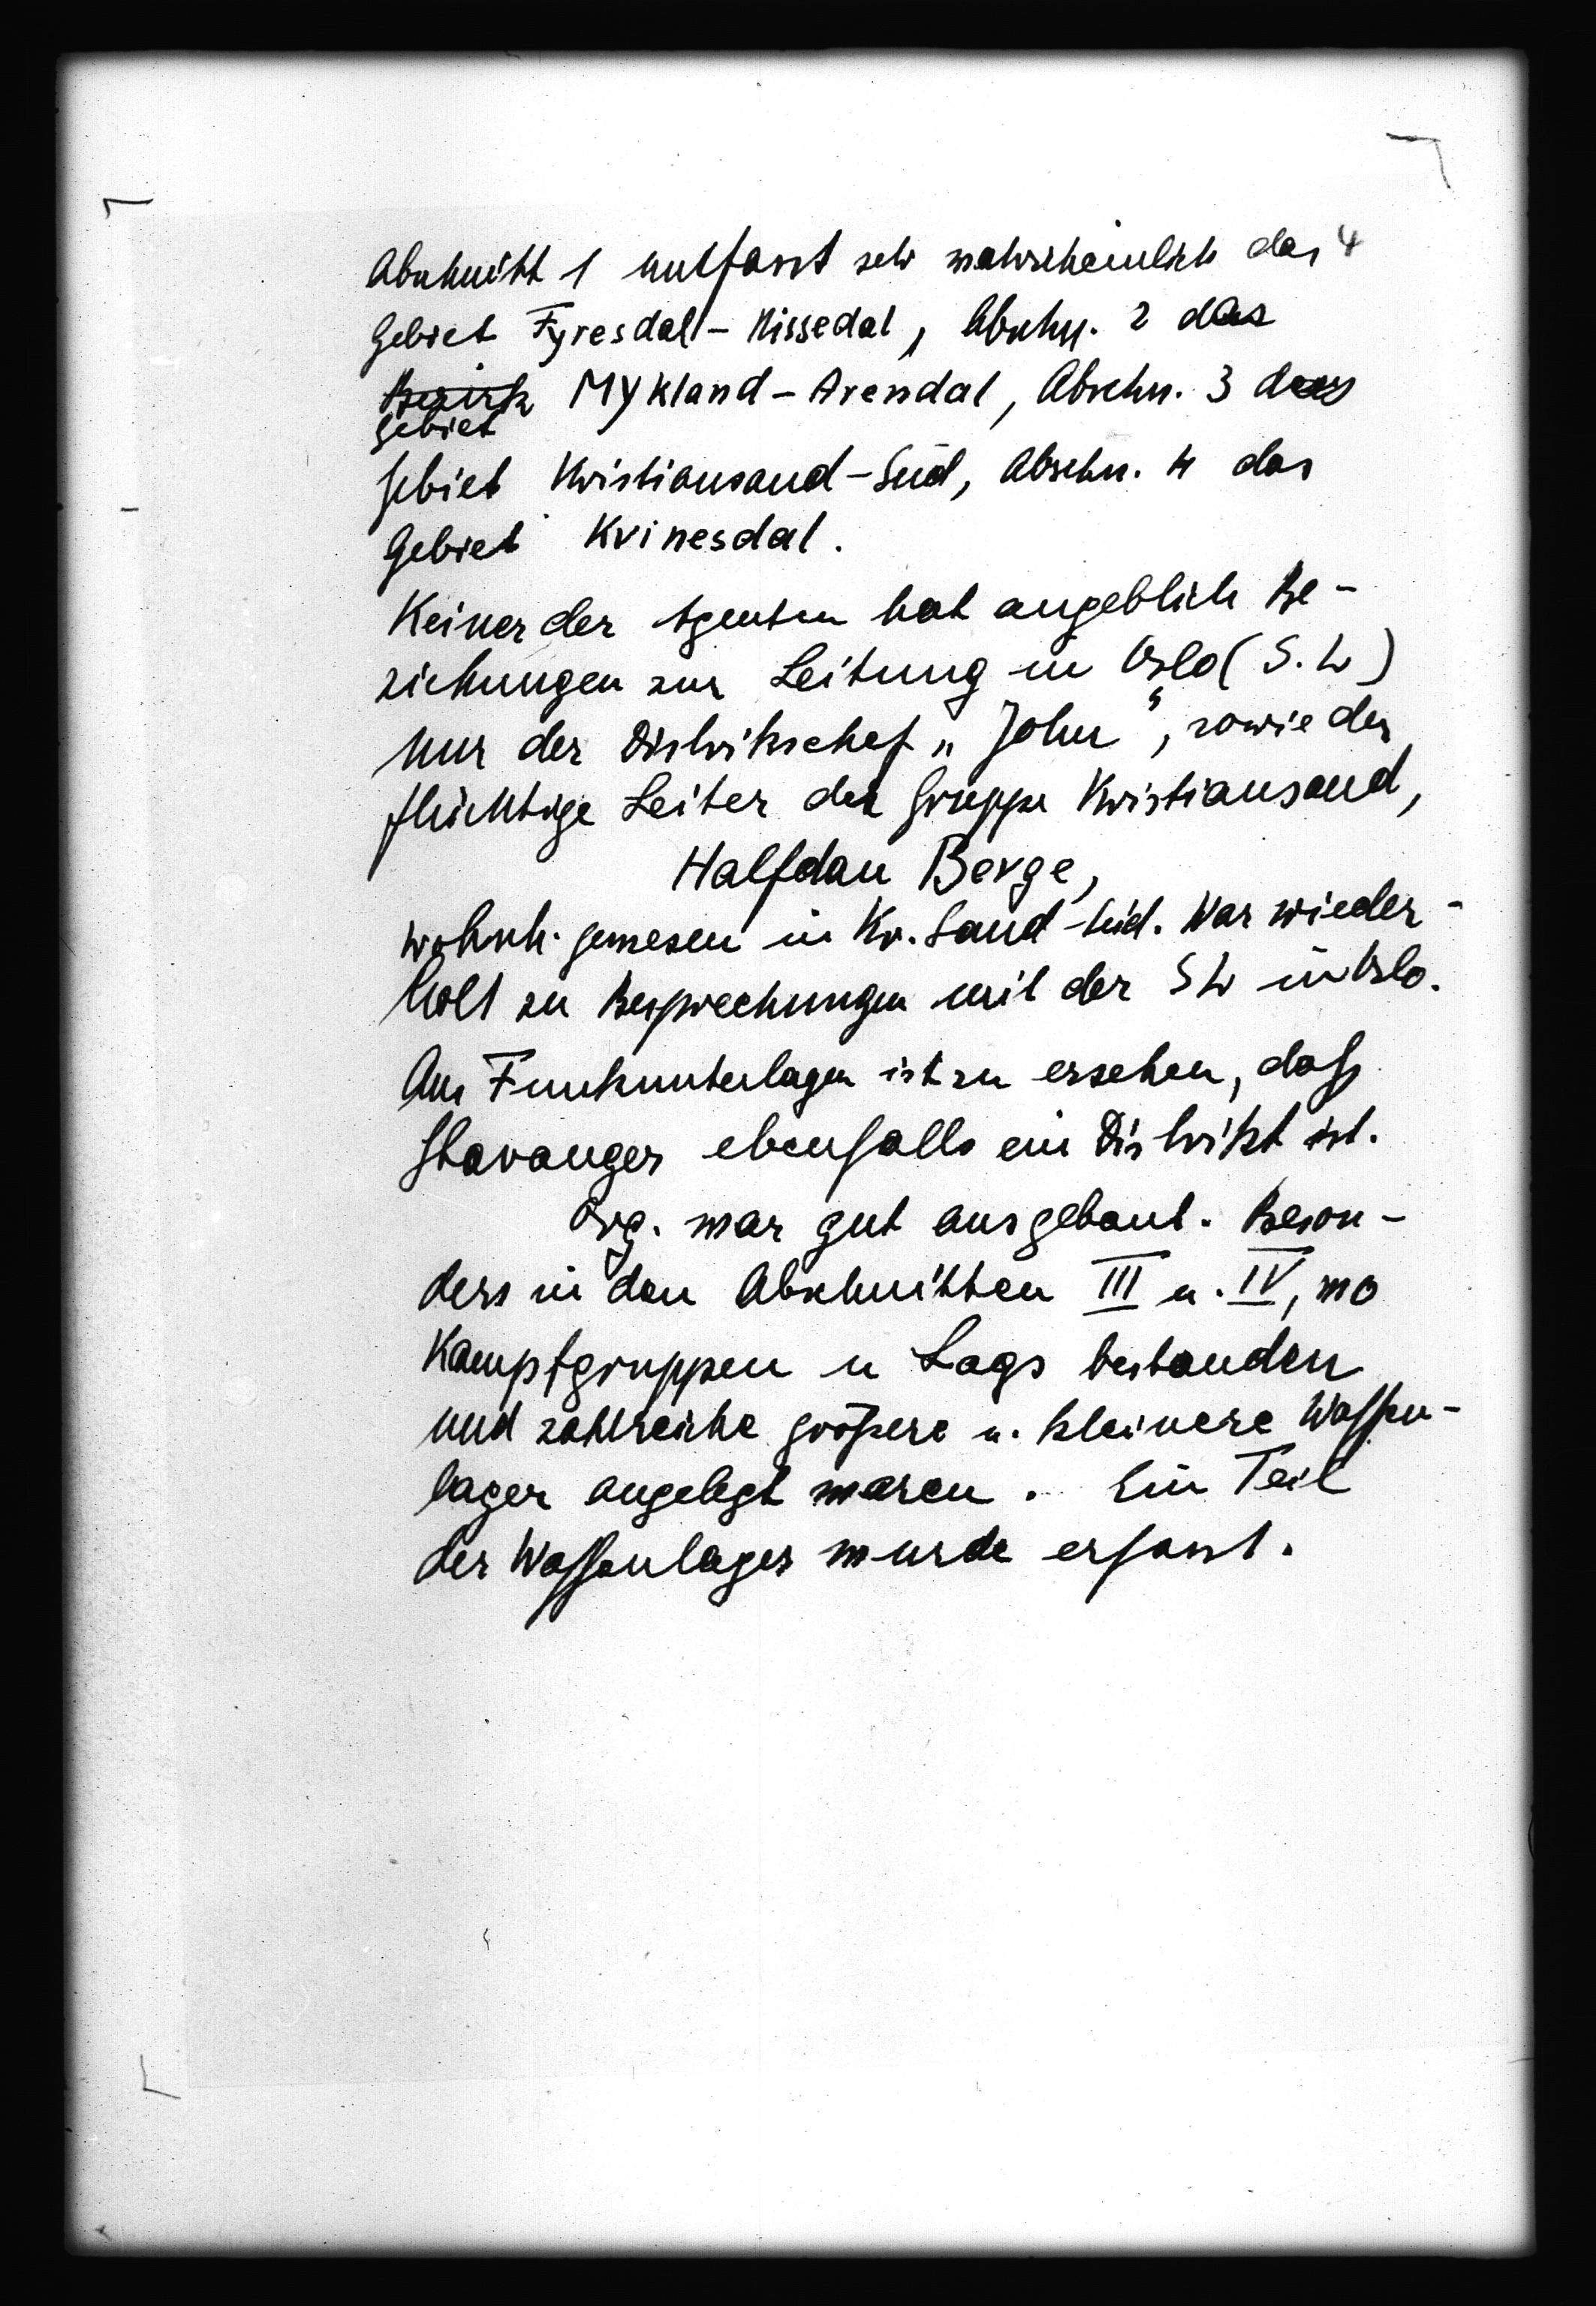 Abschnitt 1 umfasst sehr wahrscheinlich das 4
Gebiet Fyresdal - Nissedal, Abschn. 2 das
Bezirk Mykland - Arendal, Abschn. 3 das
Gebiet
Gebiet Kristiansand-Süd, Abschn. 4 das
Gebiet Kvinesdal.
Keiner der Agenten hat angeblich Be-
ziehungen zur Leitung in Oslo (S.L)
nur der Distriktschef „John“, sowie der
flüchtige Leiter der Gruppe Kristiansand,
Halfdan Berge,
wohnh. gewesen in Kr. Sand-Süd. War wieder-
holt zu Besprechungen mit der SL in Oslo.
Aus Funkunterlagen ist zu ersehen, daß
Stavanger ebenfalls ein Distrikt ist.
Org. war gut ausgebaut. Beson-
ders in den Abschnitten III u. IV, wo
Kampfgruppen u Lags bestanden
und zahlreiche größere u. kleinere Waffen-
lager angelegt waren. Ein Teil
der Waffenlager wurde erfasst.